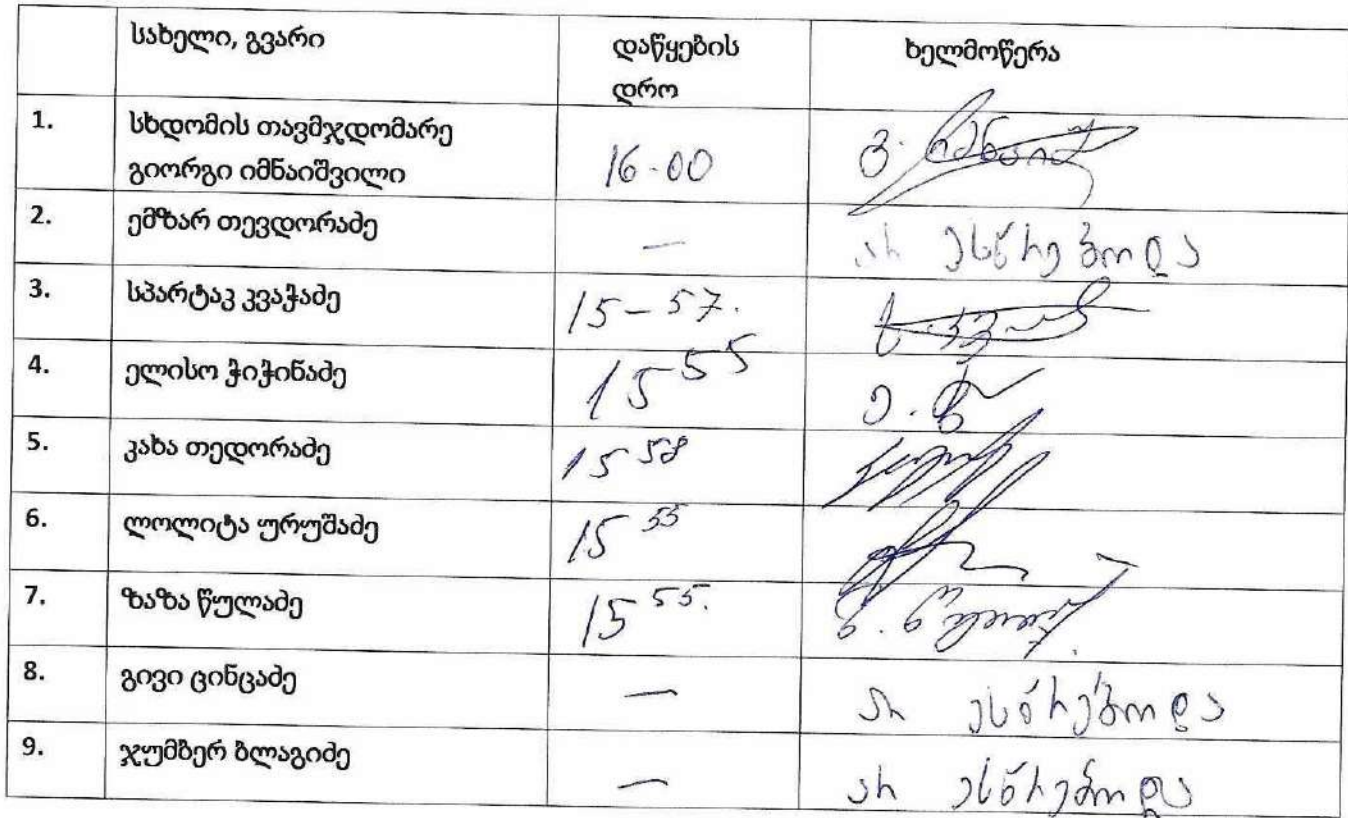 სახელი, გვარი დაწყების დრო ხელმოწერა
1. სხდომის თავმჯდომარე გიორგი იმნაიშვილი 16-00
2. ემზარ თევდორაძე — არ ესწრებოდა
3. სპარტაკ კვაჭაძე 15-57.
4. ელისო ჭიჭინაძე 15 55
5. კახა თედორაძე 15 58
6. ლოლიტა ურუშაძე 15 55
7. ზაზა წულაძე 15 55.
8. გივი ცინცაძე — არ ესწრებოდა
9. ჯუმბერ ბლაგიძე — არ ესწრებოდა